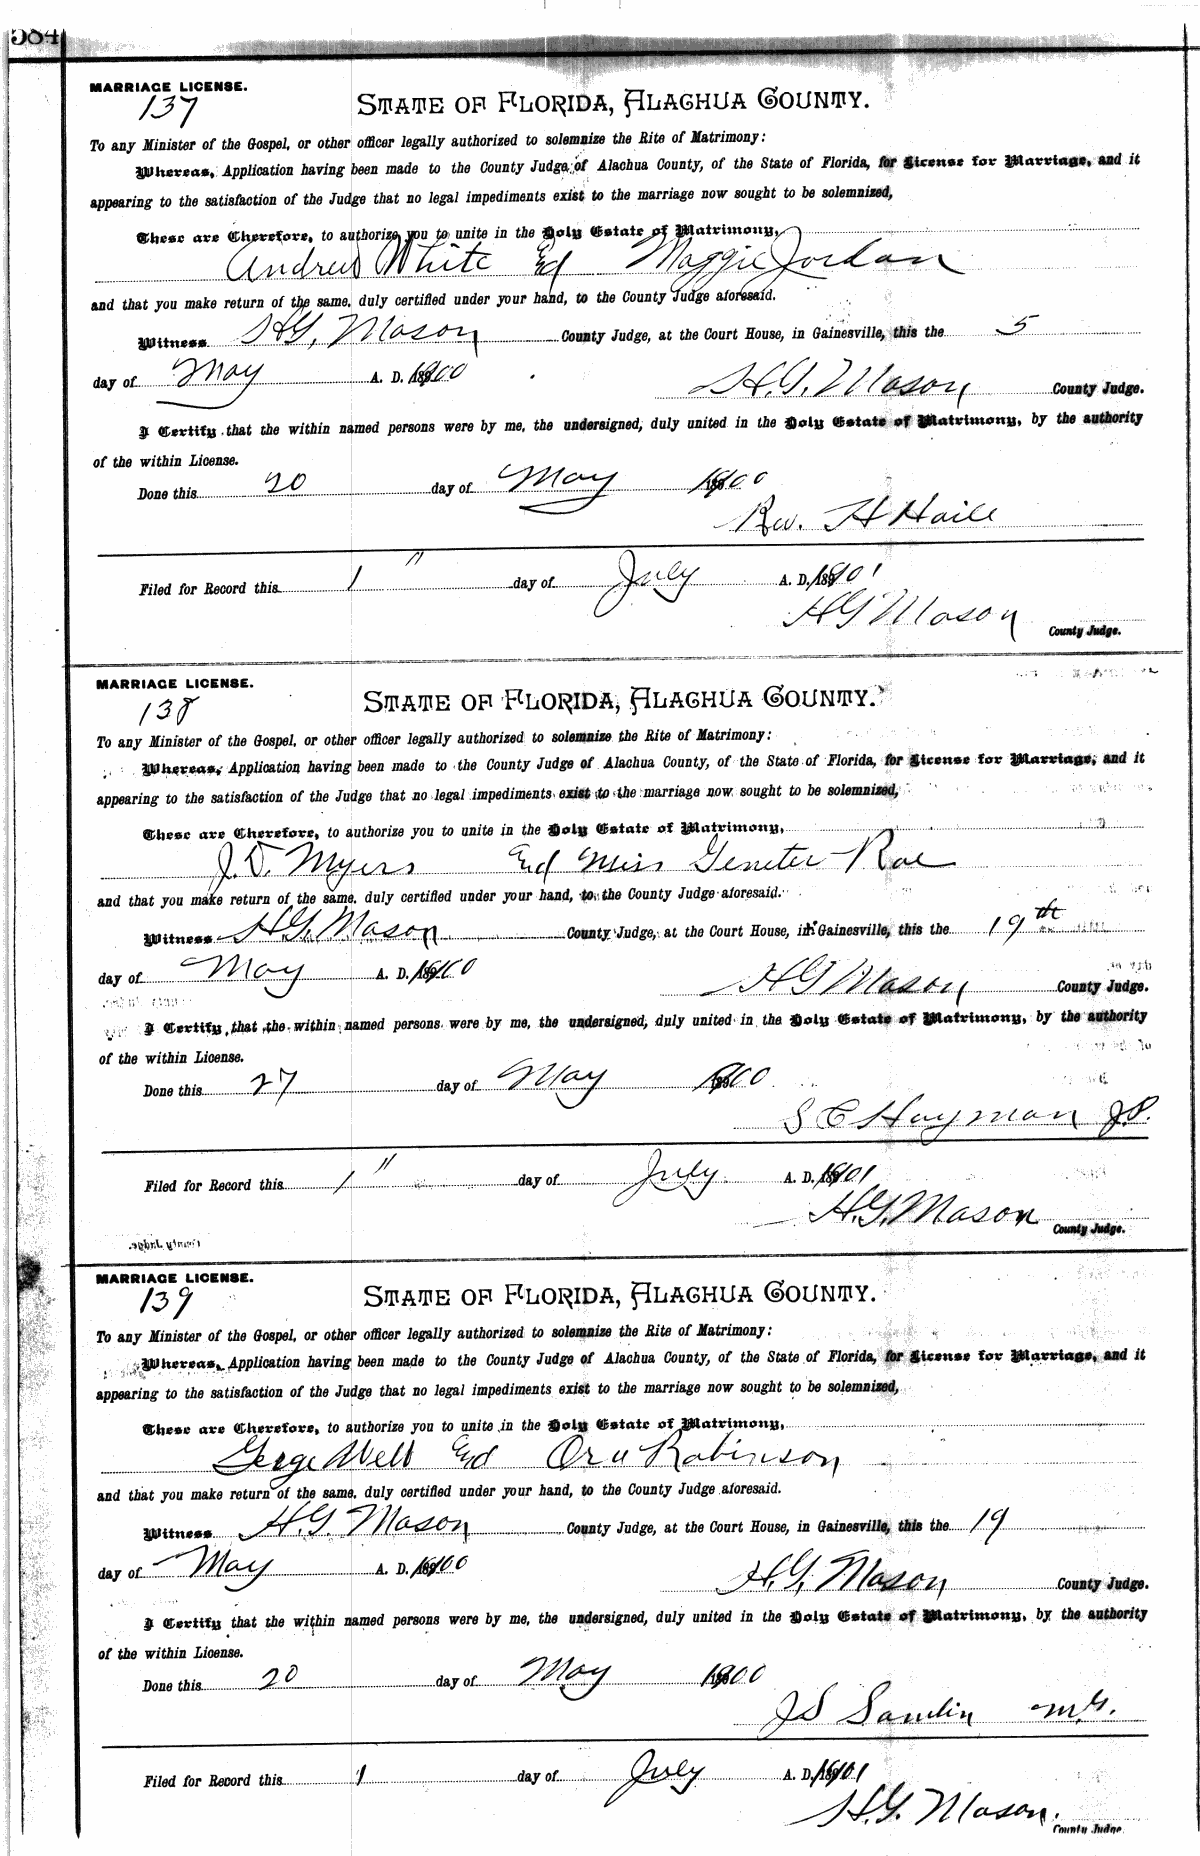 584
MARRIAGE LICENSE.
137
STATE OF FLORIDA, ALACHUA COUNTY.
To any Minister of the Gospel, or other officer legally authorized to solemnize the Rite of Matrimony:
Whereas, Application having been made to the County Judge of Alachua County, of the State of Florida, for License for Marriage, and it
appearing to the satisfaction of the Judge that no legal impediments exist to the marriage now sought to be solemnized,
These are Therefore, to authorize you to unite in the Holy Estate of Matrimony,
Andrew White Ed Maggie Jordan
and that you make return of the same, duly certified under your hand, to the County Judge aforesaid.
Witness H.G. Mason County Judge, at the Court House, in Gainesville, this the 5
day of May A. D. 1900 H.G. Mason County Judge.
I Certify that the within named persons were by me, the undersigned, duly united in the Holy Estate of Matrimony, by the authority
of the within License.
Done this 20 day of May 1900
Rev. H Haile
Filed for Record this 1 " day of July A. D. 1901
H G Mason
County Judge.
MARRIAGE LICENSE.
138
STATE OF FLORIDA, ALACHUA COUNTY.
To any Minister of the Gospel, or other officer legally authorized to solemnize the Rite of Matrimony:
Whereas, Application having been made to the County Judge of Alachua County, of the State of Florida, for License for Marriage, and it
appearing to the satisfaction of the Judge that no legal impediments exist to the marriage now sought to be solemnized,
These are Therefore, to authorize you to unite in the Holy Estate of Matrimony,
J. D. Myers Ed Miss Geneter Roe
and that you make return of the same, duly certified under your hand, to the County Judge aforesaid.
Witness H.G. Mason County Judge, at the Court House, in Gainesville, this the 19th
day of May A. D. 1900 H G Mason County Judge.
I Certify that the within named persons were by me, the undersigned, duly united in the Holy Estate of Matrimony, by the authority
of the within License.
Done this 27 day of May 1900
S C Hayman J.P.
Filed for Record this 1 " day of July A. D. 1901
H.G. Mason
County Judge.
MARRIAGE LICENSE.
139
STATE OF FLORIDA, ALACHUA COUNTY.
To any Minister of the Gospel, or other officer legally authorized to solemnize the Rite of Matrimony:
Whereas, Application having been made to the County Judge of Alachua County, of the State of Florida, for License for Marriage, and it
appearing to the satisfaction of the Judge that no legal impediments exist to the marriage now sought to be solemnized,
These are Therefore, to authorize you to unite in the Holy Estate of Matrimony,
Ed Ora Robinson
and that you make return of the same, duly certified under your hand, to the County Judge aforesaid.
Witness H.G. Mason County Judge, at the Court House, in Gainesville, this the 19
day of May A. D. 1900 H.G. Mason County Judge.
I Certify that the within named persons were by me, the undersigned, duly united in the Holy Estate of Matrimony, by the authority
of the within License.
Done this 20 day of May 1900
J S Samlin M.G.
Filed for Record this 1 day of July A. D. 1901
H.G. Mason.
County Judge.